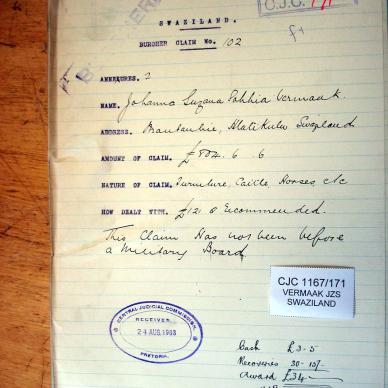 C.J.C.
SWAZILAND.
BURGHER CLAIM No. 102
ANNEXURES. 2
NAME. Johanna Suzana Sophia Vermaak.
ADDRESS. Hlatikulu Swaziland
AMOUNT OF CLAIM. £804. 6. 6
NATURE OF CLAIM. Furniture, Cattle, Horses, etc
HOW DEALT WITH. £121 Recommended.
This Claim Has not been before
a Military Board
CJC 1167/171
VERMAAK JZS
SWAZILAND
CENTRAL JUDICIAL COMMISSION.
RECEIVED
24 AUG. 1903
PRETORIA.
Cash £3. 5
Receives 30-10/-
Award £34